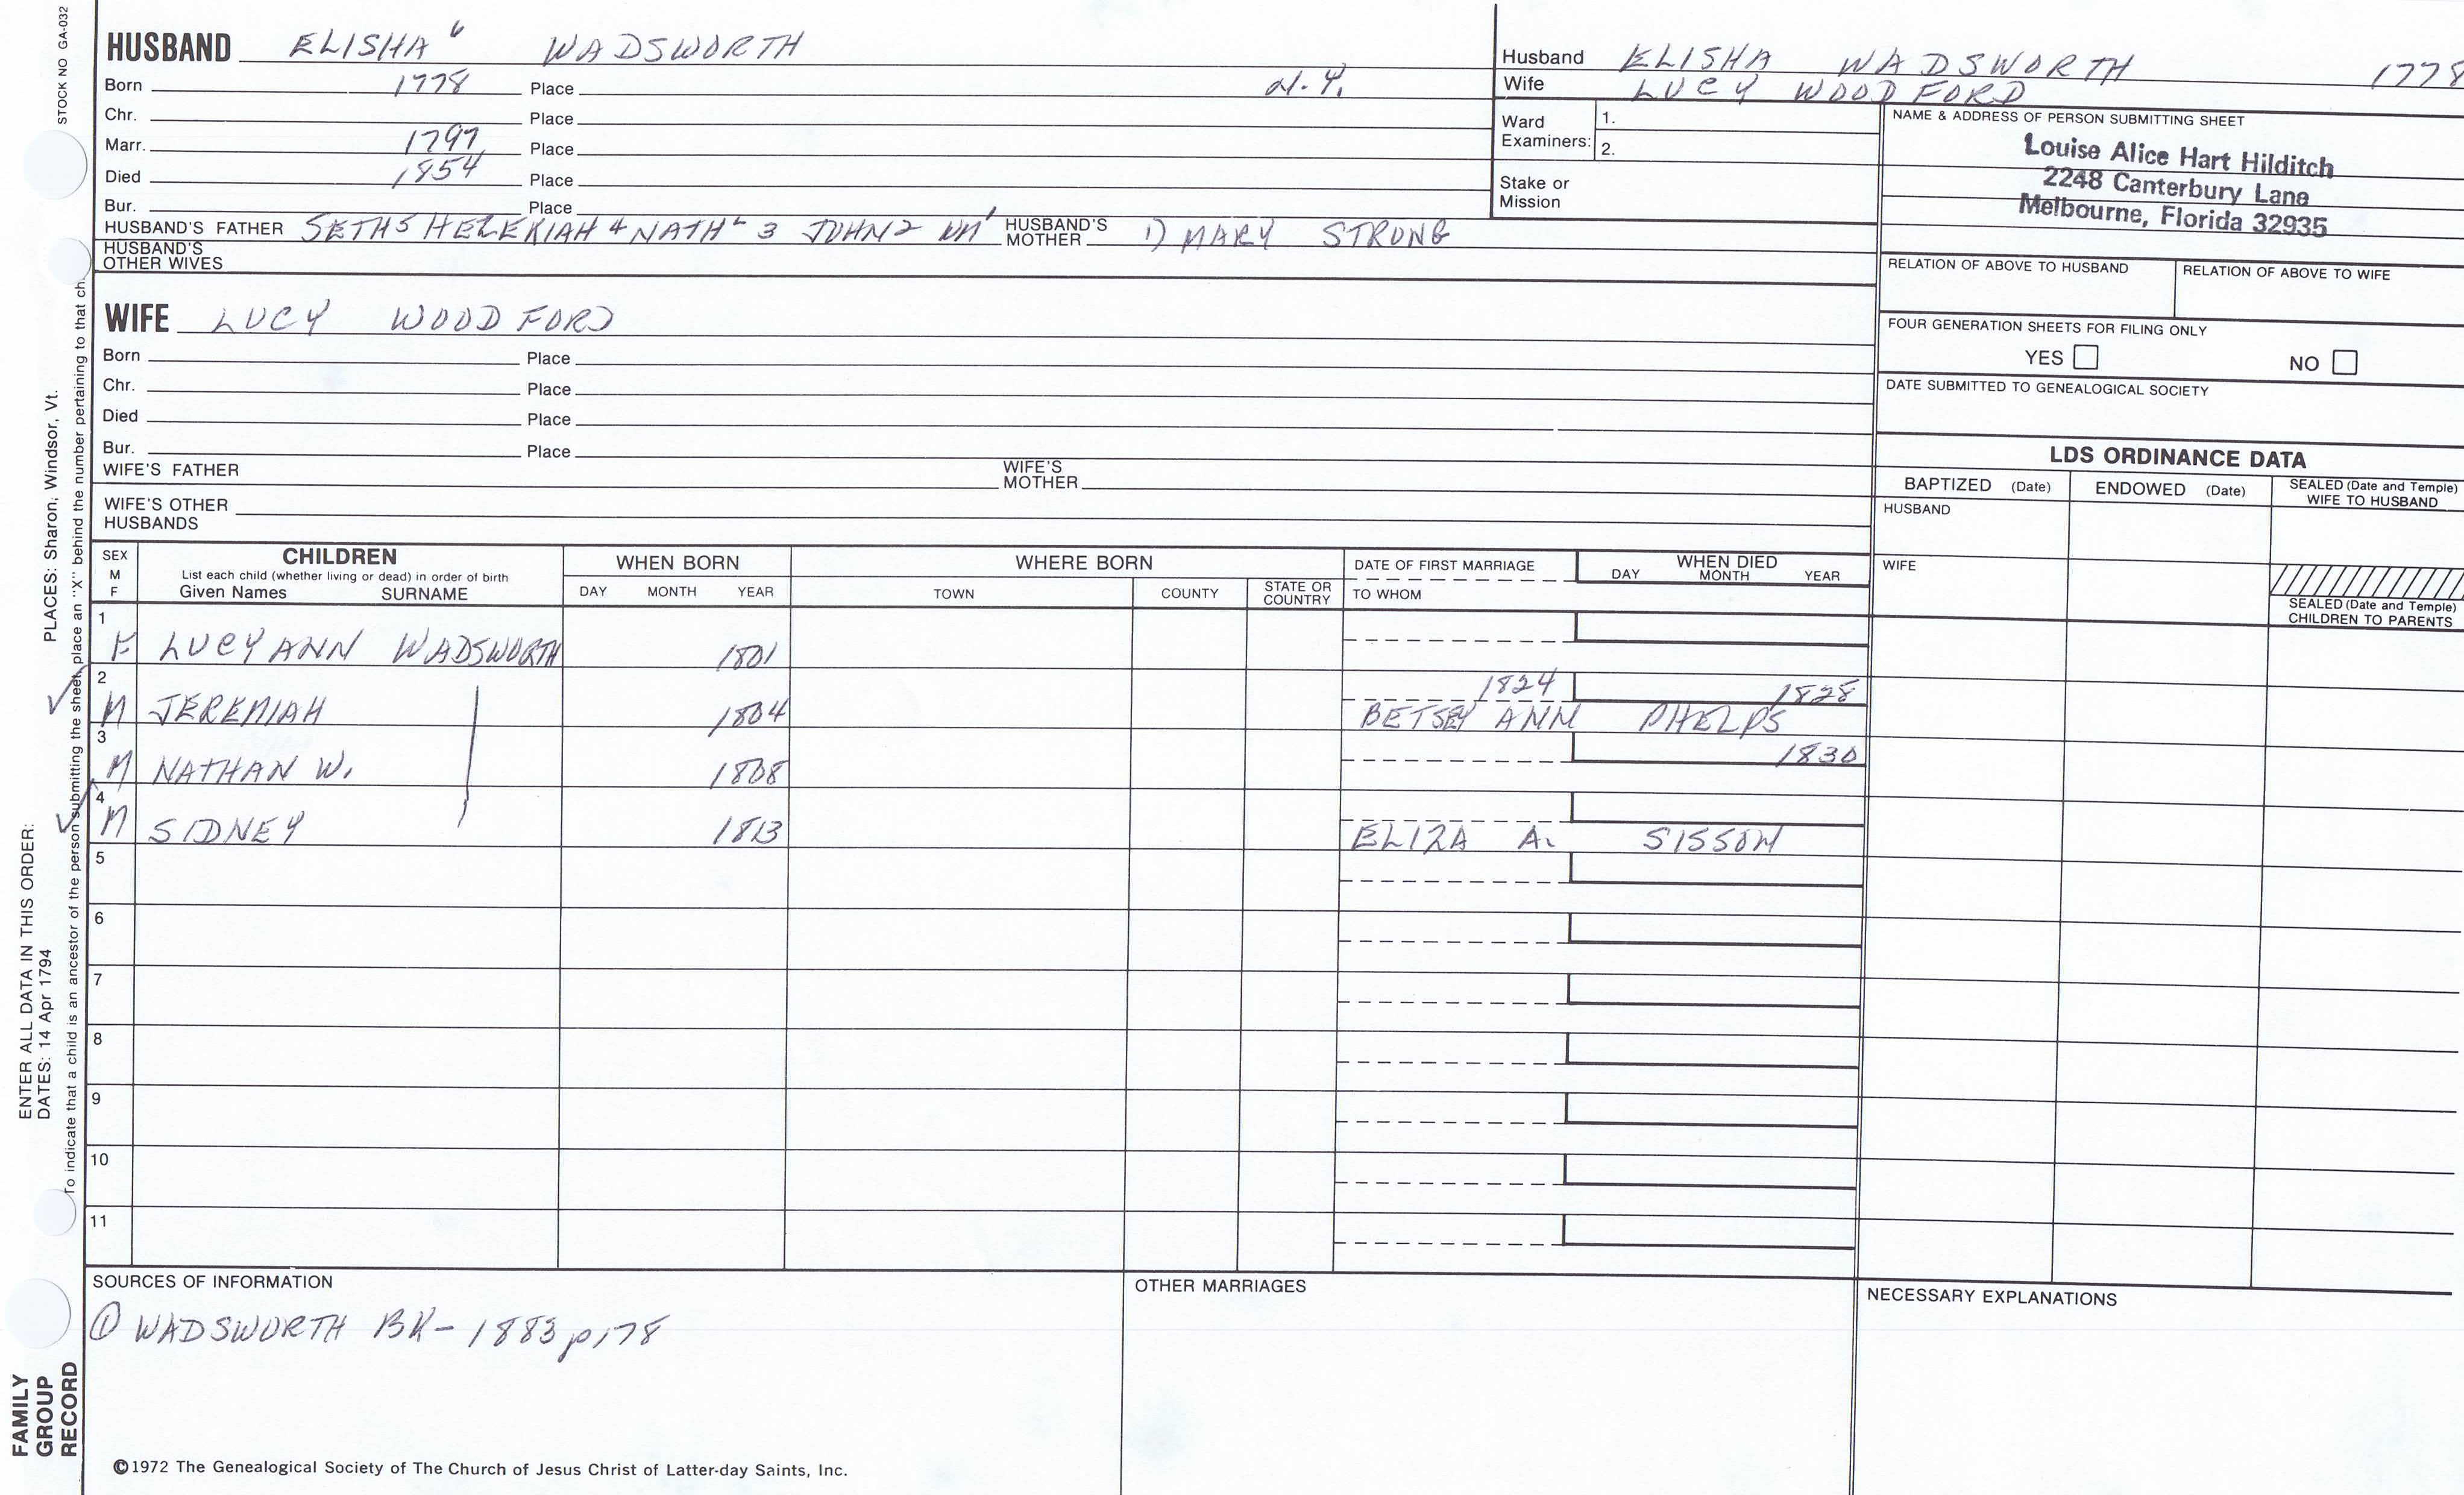 STOCK NO GA-032
HUSBAND ELISHA 6 WADSWORTH
Born 1778 Place N.Y.
Chr. Place
Marr. 1797 Place
Died 1854 Place
Bur. Place
HUSBAND'S FATHER SETH 5 HEZEKIAH 4 NATHL 3 JOHN 2 WM 1 HUSBAND'S MOTHER 1) MARY STRONG
HUSBAND'S OTHER WIVES
Husband ELISHA WADSWORTH 1778
Wife LUCY WOODFORD
Ward Examiners: 1.
2.
Stake or Mission
NAME & ADDRESS OF PERSON SUBMITTING SHEET
Louise Alice Hart Hilditch
2248 Canterbury Lane
Melbourne, Florida 32935
RELATION OF ABOVE TO HUSBAND RELATION OF ABOVE TO WIFE
FOUR GENERATION SHEETS FOR FILING ONLY
YES NO
DATE SUBMITTED TO GENEALOGICAL SOCIETY
WIFE LUCY WOODFORD
Born Place
Chr. Place
Died Place
Bur. Place
WIFE'S FATHER WIFE'S MOTHER
WIFE'S OTHER HUSBANDS
LDS ORDINANCE DATA
BAPTIZED (Date) ENDOWED (Date) SEALED (Date and Temple) WIFE TO HUSBAND
HUSBAND
WIFE
SEALED (Date and Temple) CHILDREN TO PARENTS
SEX M F
CHILDREN
List each child (whether living or dead) in order of birth
Given Names SURNAME
WHEN BORN
DAY MONTH YEAR
WHERE BORN
TOWN COUNTY STATE OR COUNTRY
DATE OF FIRST MARRIAGE
TO WHOM
WHEN DIED
DAY MONTH YEAR
1 F LUCY ANN WADSWORTH 1801
2 M JEREMIAH 1804 1824 1828
BETSEY ANN PHELPS
3 M NATHAN W. 1808 1830
4 M SIDNEY 1813
ELIZA A. SISSON
5
6
7
8
9
10
11
SOURCES OF INFORMATION
① WADSWORTH BK - 1883 p 178
OTHER MARRIAGES
NECESSARY EXPLANATIONS
©1972 The Genealogical Society of The Church of Jesus Christ of Latter-day Saints, Inc.
FAMILY
GROUP
RECORD
ENTER ALL DATA IN THIS ORDER:
DATES: 14 Apr 1794 PLACES: Sharon, Windsor, Vt.
To indicate that a child is an ancestor of the person submitting the sheet, place an "X" behind the number pertaining to that ch